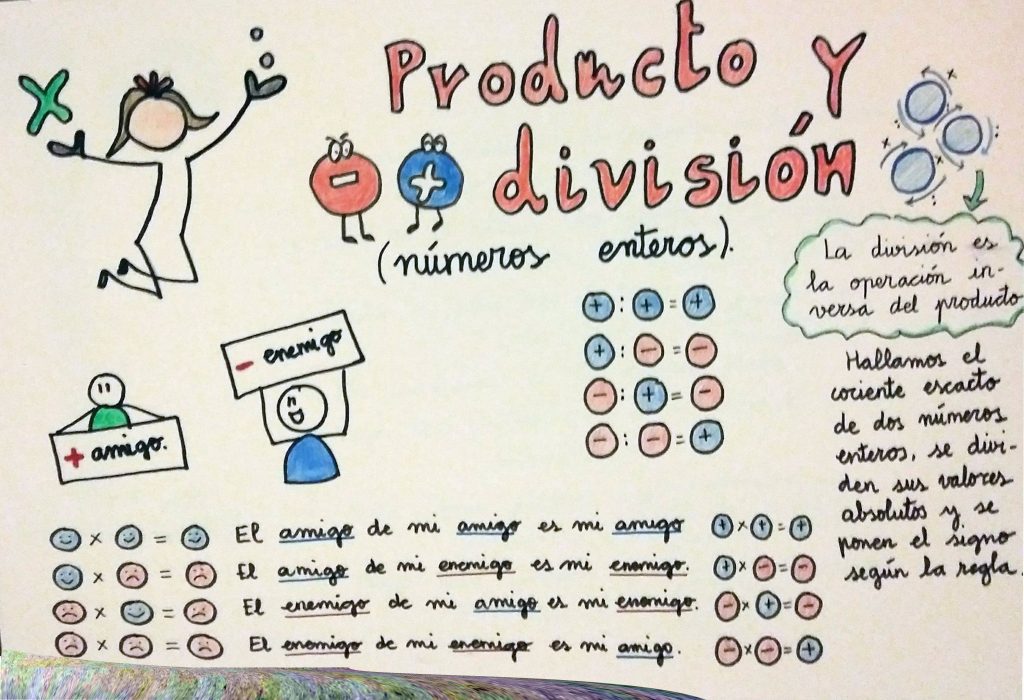 Producto y
división
(números enteros).
La división es
la operación in-
versa del producto
+ : + = +
+ : - = -
- : + = -
- : - = +
- enemigo
+ amigo.
Hallamos el
cociente escacto
de dos números
enteros, se divi-
den sus valores
absolutos y se
ponen el signo
según la regla.
El amigo de mi amigo es mi amigo + x + = +
El amigo de mi enemigo es mi enemigo. + x - = -
El enemigo de mi amigo es mi enemigo. - x + = -
El enemigo de mi enemigo es mi amigo. - x - = +